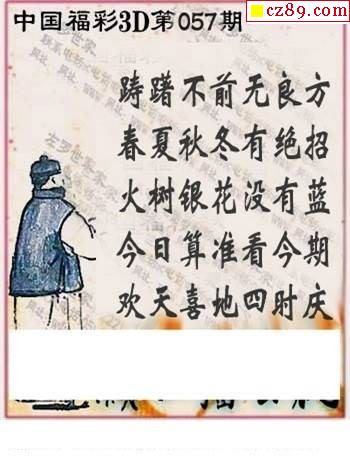 cz89.com
中国福彩3D第057期
踌躇不前无良方
春夏秋冬有绝招
火树银花没有蓝
今日算准看今期
欢天喜地四时庆